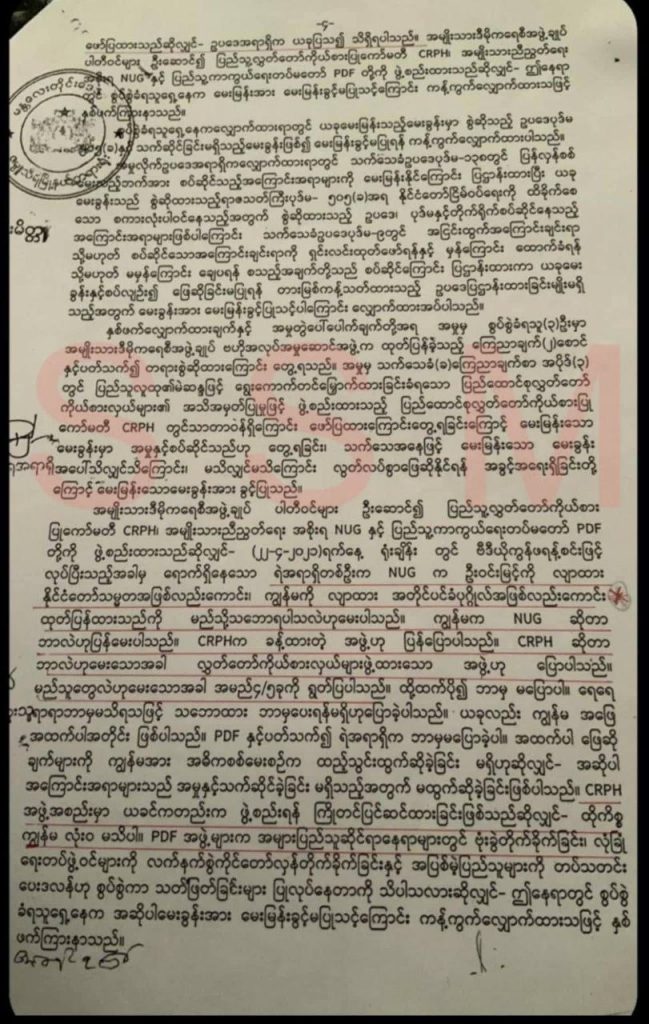 -၄-
ဖော်ပြထားသည်ဆိုလျှင်- ဥပဒေအရာရှိက ယခုပြသ၍ သိရှိရပါသည်။ အမျိုးသားဒီမိုကရေစီအဖွဲ့ချုပ်
ပါတီဝင်များ ဦးဆောင်၍ ပြည်သူ့လွှတ်တော်ကိုယ်စားပြုကော်မတီ CRPH၊ အမျိုးသားညီညွတ်ရေး
အစိုးရ NUG နှင့် ပြည်သူ့ကာကွယ်ရေးတပ်မတော် PDF တို့ကို ဖွဲ့စည်းထားသည်ဆိုလျှင်- ဤနေရာ
တွင် စွပ်စွဲခံရသူရှေ့နေက မေးမြန်းအား မေးမြန်းခွင့်မပြုသင့်ကြောင်း ကန့်ကွက်လျှောက်ထားသဖြင့်
နှစ်ဖက်ကြားနာသည်။
စွပ်စွဲခံရသူရှေ့နေကလျှောက်ထားရာတွင် ယခုမေးမြန်းသည့်မေးခွန်းမှာ စွဲဆိုသည့် ဥပဒေပုဒ်မ
၅၀၅(ခ)နှင့် သက်ဆိုင်ခြင်းမရှိသည့်မေးခွန်းဖြစ်၍ မေးမြန်းခွင့်မပြုရန် ကန့်ကွက်လျှောက်ထားပါသည်။
အမှုလိုက်ဥပဒေအရာရှိကလျှောက်ထားရာတွင် သက်သေခံဥပဒေပုဒ်မ-၁၃၈တွင် ပြန်လှန်စစ်
မေးသည့်ဘက်အား စပ်ဆိုင်သည့်အကြောင်းအရာများကို မေးမြန်းနိုင်ကြောင်း ပြဌာန်းထားပြီး ယခု
မေးခွန်းသည် စွဲဆိုထားသည့်ရာဇသတ်ကြီးပုဒ်မ- ၅၀၅(ခ)အရ နိုင်ငံတော်ငြိမ်ဝပ်ရေးကို ထိခိုက်စေ
သော စကားလုံးပါဝင်နေသည့်အတွက် စွဲဆိုထားသည့် ဥပဒေ၊ ပုဒ်မနှင့်တိုက်ရိုက်စပ်ဆိုင်နေသည့်
အကြောင်းအရာများဖြစ်ပါကြောင်း သက်သေခံဥပဒေပုဒ်မ-၉တွင် အငြင်းထွက်အကြောင်းချင်းရာ
သို့မဟုတ် စပ်ဆိုင်သောအကြောင်းချင်းရာကို ရှင်းလင်းထုတ်ဖော်ရန်နှင့် မှန်ကြောင်း ထောက်ခံရန်
သို့မဟုတ် မမှန်ကြောင်း ချေပရန် စသည့်အချက်တို့သည် စပ်ဆိုင်ကြောင်း ပြဌာန်းထားကာ ယခုမေး
ခွန်းနှင့်စပ်လျဉ်း၍ ဖြေဆိုခြင်းမပြုရန် တားမြစ်ကန့်သတ်ထားသည့် ဥပဒေပြဌာန်းထားခြင်းမျိုးမရှိ
သည့်အတွက် မေးခွန်းအား မေးမြန်းခွင့်ပြုသင့်ပါကြောင်း လျှောက်ထားအပ်ပါသည်။
နှစ်ဖက်လျှောက်ထားချက်နှင့် အမှုတွဲပေါ်ပေါက်ချက်တို့အရ အမှုမှ စွပ်စွဲခံရသူ(၃)ဦးမှာ
အမျိုးသားဒီမိုကရေစီအဖွဲ့ချုပ် ဗဟိုအလုပ်အမှုဆောင်အဖွဲ့က ထုတ်ပြန်ခဲ့သည့် ကြေညာချက်(၂)စောင်
နှင့်ပတ်သက်၍ တရားစွဲဆိုထားကြောင်း တွေ့ရသည်။ အမှုမှ သက်သေခံ(ခ)ကြေညာချက်စာ အပိုဒ်(၃)
တွင် ပြည်သူလူထု၏မဲဆန္ဒဖြင့် ရွေးကောက်တင်မြှောက်ထားခြင်းခံရသော ပြည်ထောင်စုလွှတ်တော်
ကိုယ်စားလှယ်များ၏ အသိအမှတ်ပြုမှုဖြင့် ဖွဲ့စည်းထားသည့် ပြည်ထောင်စုလွှတ်တော်ကိုယ်စားပြု
ကော်မတီ CRPH တွင်သာတာဝန်ရှိကြောင်း ဖော်ပြထားကြောင်းတွေ့ရခြင်းကြောင့် မေးမြန်းသော
မေးခွန်းမှာ အမှုနှင့်စပ်ဆိုင်သည်ဟု တွေ့ရခြင်း၊ သက်သေအနေဖြင့် မေးမြန်းသော မေးခွန်း
အပေါ်သိလျှင်သိကြောင်း၊ မသိလျှင်မသိကြောင်း လွတ်လပ်စွာဖြေဆိုနိုင်ရန် အခွင့်အရေးရှိခြင်းတို့
ကြောင့် မေးမြန်းသောမေးခွန်းအား ခွင့်ပြုသည်။
အမျိုးသားဒီမိုကရေစီအဖွဲ့ချုပ် ပါတီဝင်များ ဦးဆောင်၍ ပြည်သူ့လွှတ်တော်ကိုယ်စား
ပြုကော်မတီ CRPH၊ အမျိုးသားညီညွတ်ရေး အစိုးရ NUG နှင့် ပြည်သူ့ကာကွယ်ရေးတပ်မတော် PDF
တို့ကို ဖွဲ့စည်းထားသည်ဆိုလျှင်- (၂၂-၄-၂၀၂၁)ရက်နေ့ ရုံးချိန်း တွင် ဗီဒီယိုကွန်ဖရန့်စင်းဖြင့်
လုပ်ပြီးသည့်အခါမှ ရောက်ရှိနေသော ရဲအရာရှိတစ်ဦးက NUG က ဦးဝင်းမြင့်ကို လျာထား
နိုင်ငံတော်သမ္မတအဖြစ်လည်းကောင်း၊ ကျွန်မကို လျာထား အတိုင်ပင်ခံပုဂ္ဂိုလ်အဖြစ်လည်းကောင်း
ထုတ်ပြန်ထားသည်ကို မည်သို့သဘောရပါသလဲဟုမေးပါသည်။ ကျွန်မက NUG ဆိုတာ
ဘာလဲဟုပြန်မေးပါသည်။ CRPHက ခန့်ထားတဲ့ အဖွဲ့ဟု ပြန်ပြောပါသည်။ CRPH ဆိုတာ
ဘာလဲဟုမေးသောအခါ လွှတ်တော်ကိုယ်စားလှယ်များဖွဲ့ထားသော အဖွဲ့ဟု ပြောပါသည်။
မည်သူတွေလဲဟုမေးသောအခါ အမည်၄/၅ခုကို ရွတ်ပြပါသည်။ ထို့ထက်ပို၍ ဘာမှ မပြောပါ။ ရေရေ
ရာရာဘာမှမသိရသဖြင့် သဘောထား ဘာမှပေးရန်မရှိဟုပြောခဲ့ပါသည်။ ယခုလည်း ကျွန်မ အဖြေ
အထက်ပါအတိုင်း ဖြစ်ပါသည်။ PDF နှင့်ပတ်သက်၍ ရဲအရာရှိက ဘာမှမပြောခဲ့ပါ။ အထက်ပါ ဖြေဆို
ချက်များကို ကျွန်မအား အဓိကစစ်မေးစဉ်က ထည့်သွင်းထွက်ဆိုခဲ့ခြင်း မရှိဟုဆိုလျှင်- အဆိုပါ
အကြောင်းအရာများသည် အမှုနှင့်သက်ဆိုင်ခဲ့ခြင်း မရှိသည့်အတွက် မထွက်ဆိုခဲ့ခြင်းဖြစ်ပါသည်။ CRPH
အဖွဲ့အစည်းမှာ ယခင်ကတည်းက ဖွဲ့စည်းရန် ကြိုတင်ပြင်ဆင်ထားခြင်းဖြစ်သည်ဆိုလျှင်- ထိုကိစ္စ
ကျွန်မ လုံးဝ မသိပါ။ PDF အဖွဲ့များက အများပြည်သူဆိုင်ရာနေရာများတွင် ဗုံးခွဲတိုက်ခိုက်ခြင်း၊ လုံခြုံ
ရေးတပ်ဖွဲ့ဝင်များကို လက်နက်စွဲကိုင်တော်လှန်တိုက်ခိုက်ခြင်းနှင့် အပြစ်မဲ့ပြည်သူများကို တပ်သတင်း
ပေးဒလန်ဟု စွပ်စွဲကာ သတ်ဖြတ်ခြင်းများ ပြုလုပ်နေတာကို သိပါသလားဆိုလျှင်- ဤနေရာတွင် စွပ်စွဲ
ခံရသူရှေ့နေက အဆိုပါမေးခွန်းအား မေးမြန်းခွင့်မပြုသင့်ကြောင်း ကန့်ကွက်လျှောက်ထားသဖြင့် နှစ်
ဖက်ကြားနာသည်။